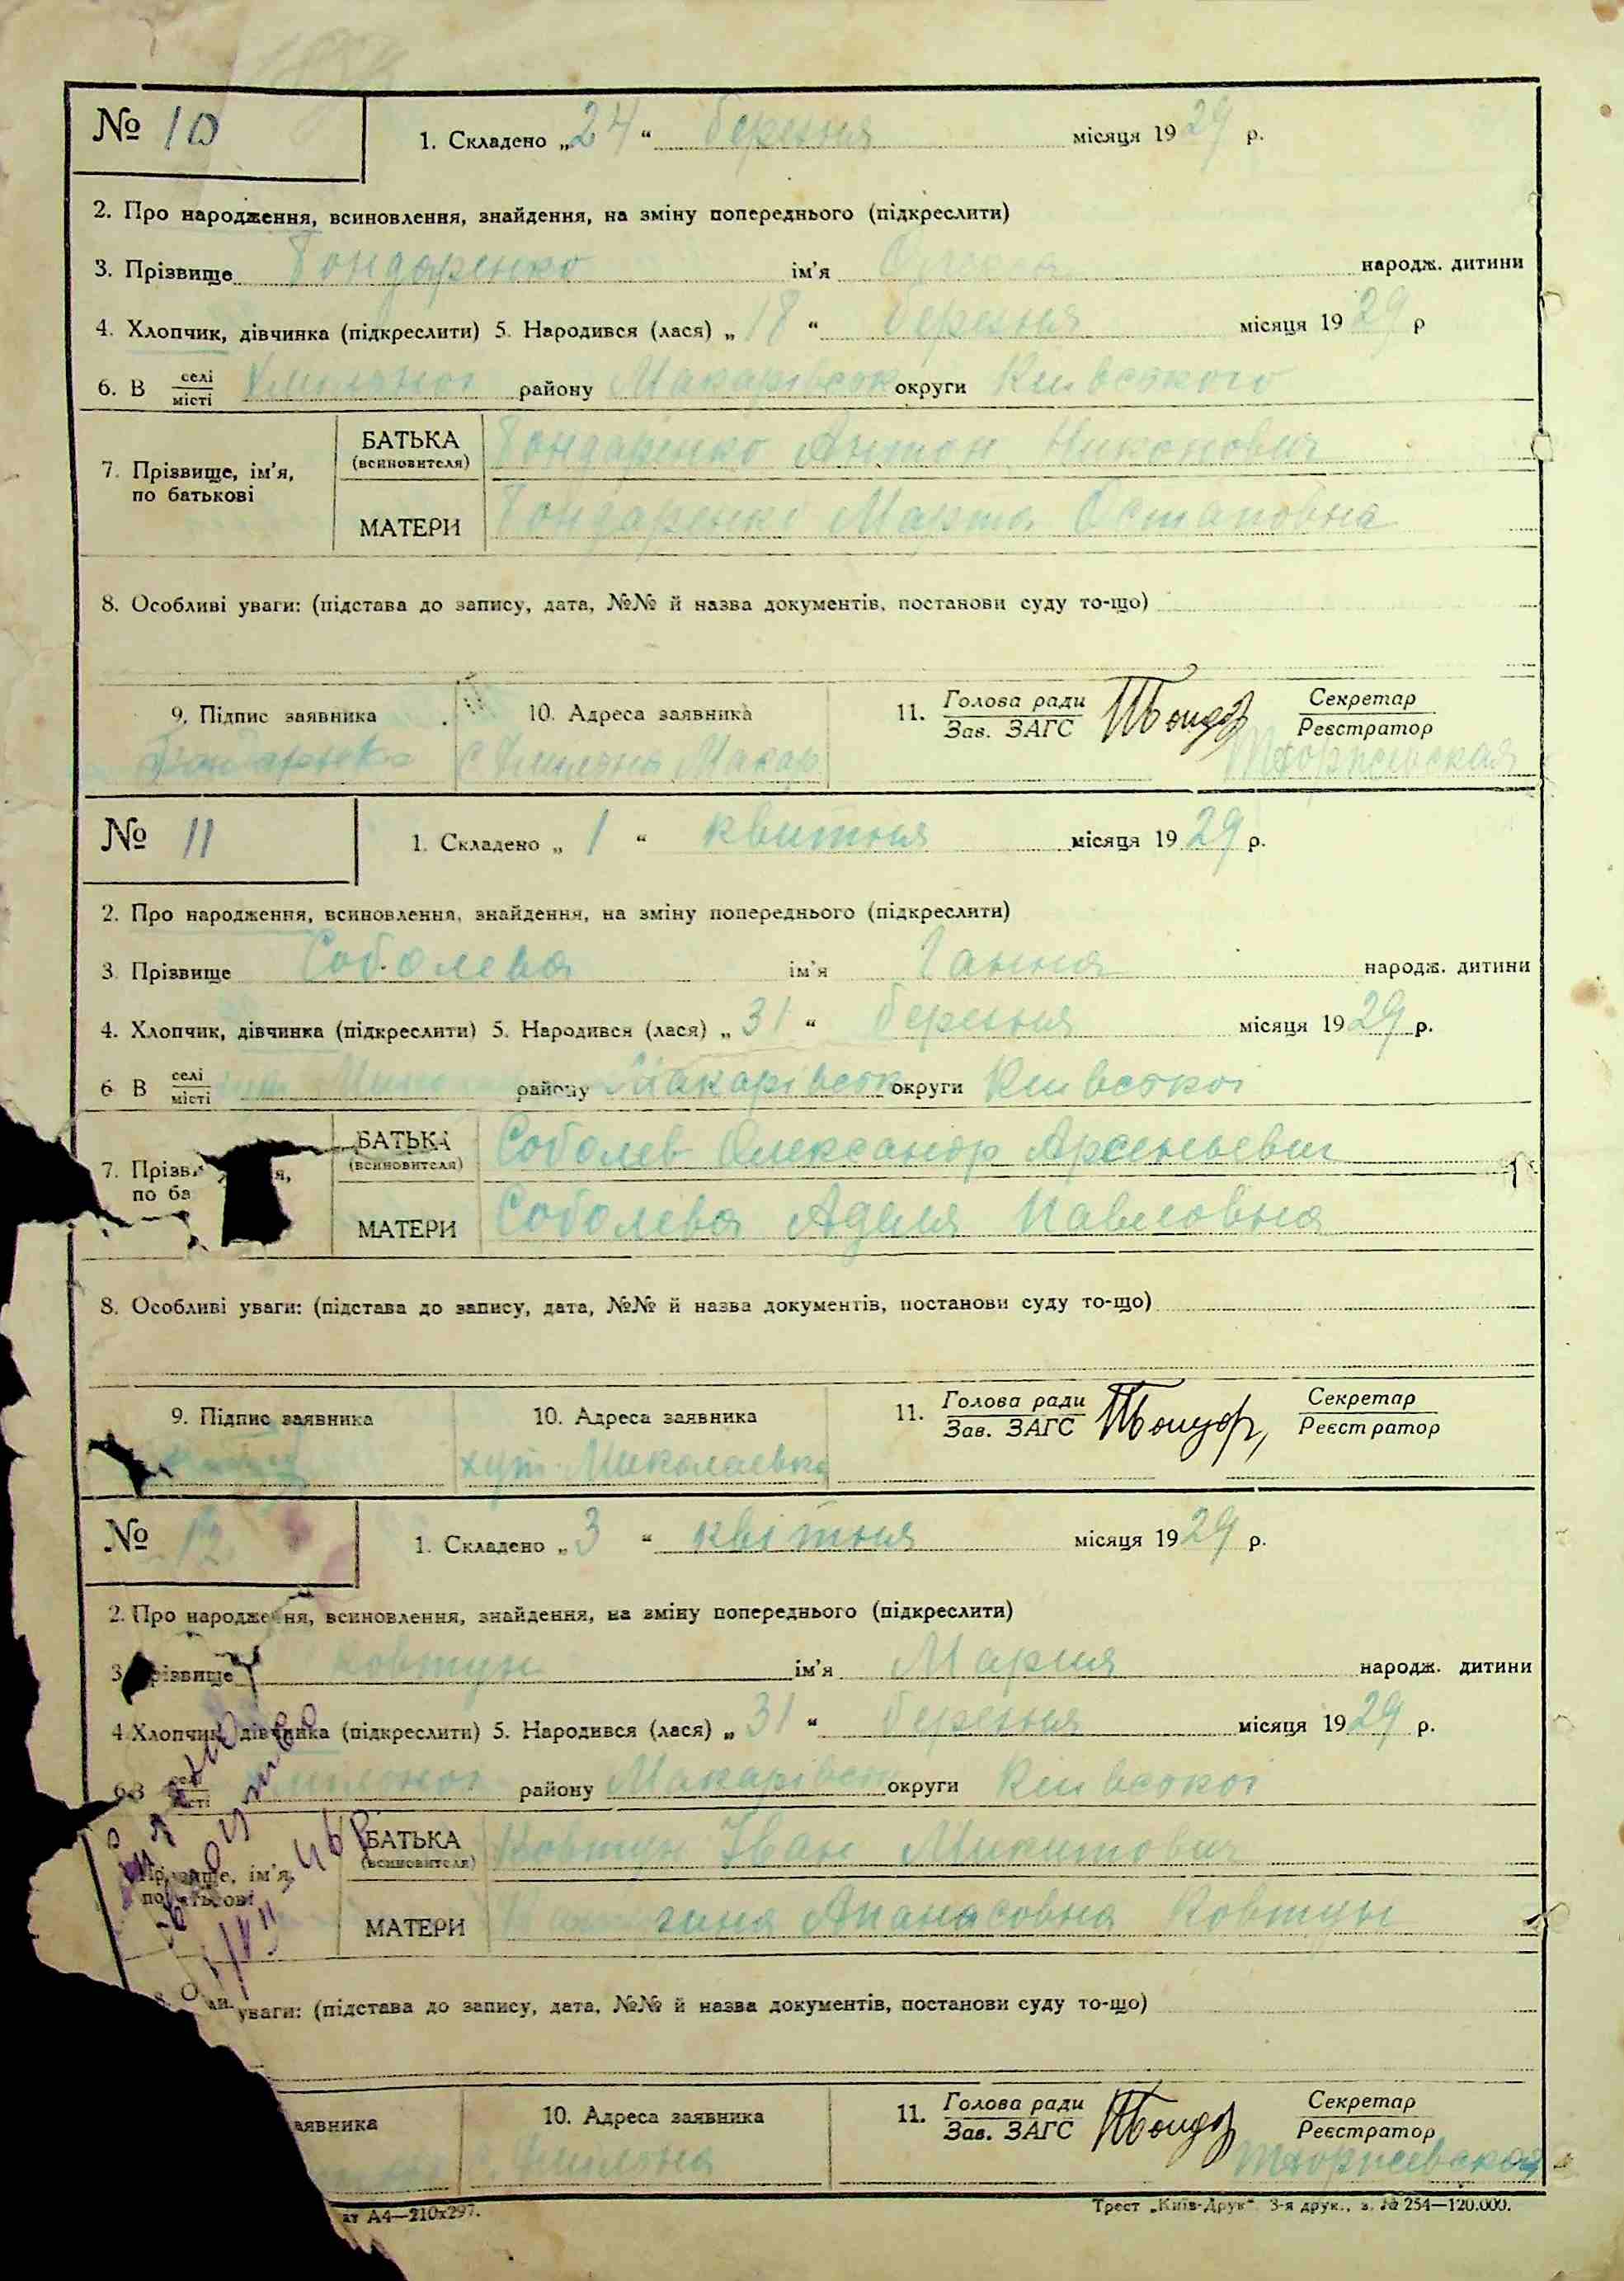 № 10
1. Складено „24“ березня місяця 1929 р.
2. Про народження, всиновлення, знайдення, на зміну попереднього (підкреслити)
3. Прізвище Бондаренко ім'я народж. дитини
4. Хлопчик, дівчинка (підкреслити) 5. Народився (лася) „18“ березня місяця 1929 р
6. В селі місті району Макарівськ округи Київського
7. Прізвище, ім'я, по батькові
БАТЬКА (всиновителя) Бондаренко Антон Никонович
МАТЕРИ Бондаренко Марта Остаповна
8. Особливі уваги: (підстава до запису, дата, №№ й назва документів, постанови суду то-що)
9. Підпис заявника 10. Адреса заявника 11. Голова ради Зав. ЗАГС Секретар Реєстратор
Бондаренко
№ 11
1. Складено „1“ квитня місяця 1929 р.
2. Про народження, всиновлення, знайдення, на зміну попереднього (підкреслити)
3. Прізвище Соболева ім'я Ганна народж. дитини
4. Хлопчик, дівчинка (підкреслити) 5. Народився (лася) „31“ березня місяця 1929 р.
6 В селі місті району Макарівськ округи Київської
7. Прізв я, по ба
БАТЬКА (всиновителя) Соболев Олександр Арсеньевич
МАТЕРИ Соболева Аделя Павловна
8. Особливі уваги: (підстава до запису, дата, №№ й назва документів, постанови суду то-що)
9. Підпис заявника 10. Адреса заявника 11. Голова ради Зав. ЗАГС Секретар Реєстратор
хут. Миколаевка
№ 12
1. Складено „3“ квітня місяця 1929 р.
2. Про народження, всиновлення, знайдення, на зміну попереднього (підкреслити)
3. Прізвище Ковтун ім'я Мария народж. дитини
4 Хлопчик, дівчинка (підкреслити) 5. Народився (лася) „31“ березня місяця 1929 р.
6 В селі місті району Макарівськ округи Київської
Прізвище, ім'я, по батькові
БАТЬКА (всиновителя) Ковтун Іван Микитович
МАТЕРИ Апанасовна Ковтун
8. О уваги: (підстава до запису, дата, №№ й назва документів, постанови суду то-що)
заявника 10. Адреса заявника 11. Голова ради Зав. ЗАГС Секретар Реєстратор
ат А4—210x297.
Трест „Київ-Друк“ 3-я друк., з. № 254—120.000.